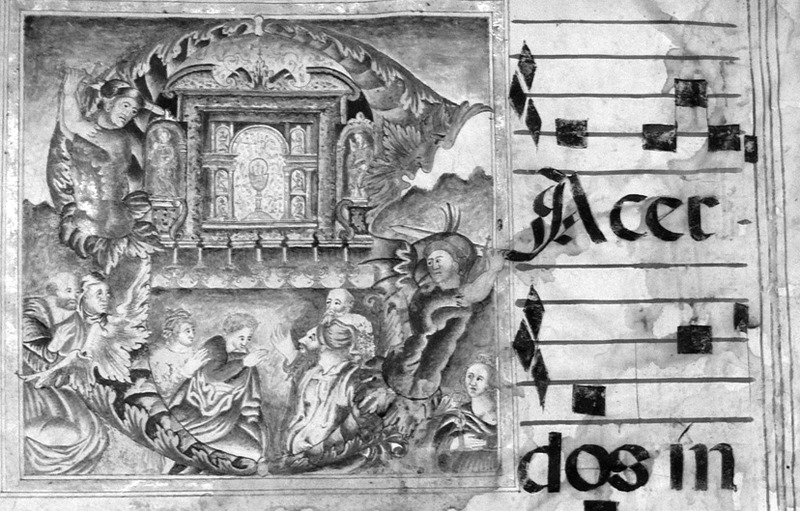 Acer-
dos in